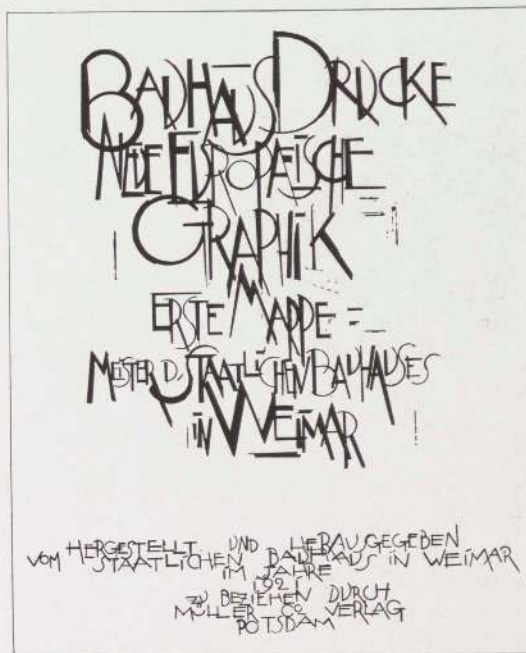 BAUHAUS DRUCKE
NEUE EUROPAEISCHE
GRAPHIK
ERSTE MAPPE
MEISTER D. STAATLICHEN BAUHAUSES
IN WEIMAR
HERGESTELLT UND HERAUSGEGEBEN
VOM STAATLICHEN BAUHAUS IN WEIMAR
IM JAHRE
1921
ZU BEZIEHEN DURCH
MÜLLER & CO VERLAG
POTSDAM